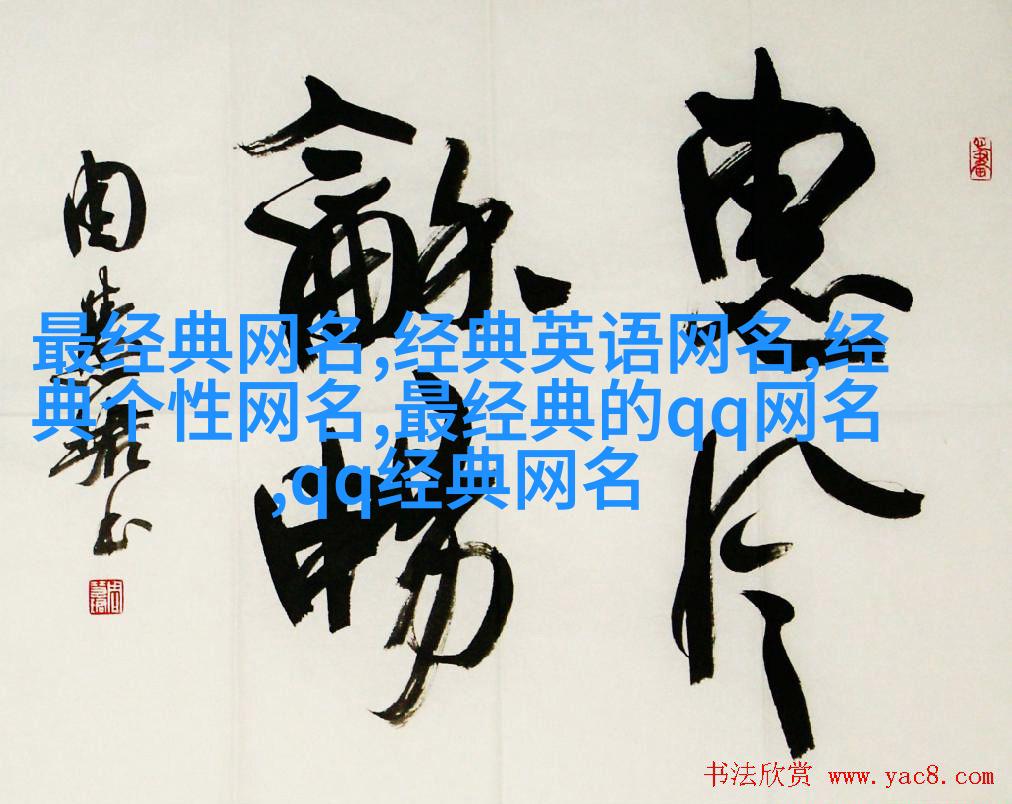 惠风
龢畅
周慧珺书
最经典网名,经典英语网名,经
典个性网名,最经典的qq网名
,qq经典网名
书法欣赏 www.yac8.com